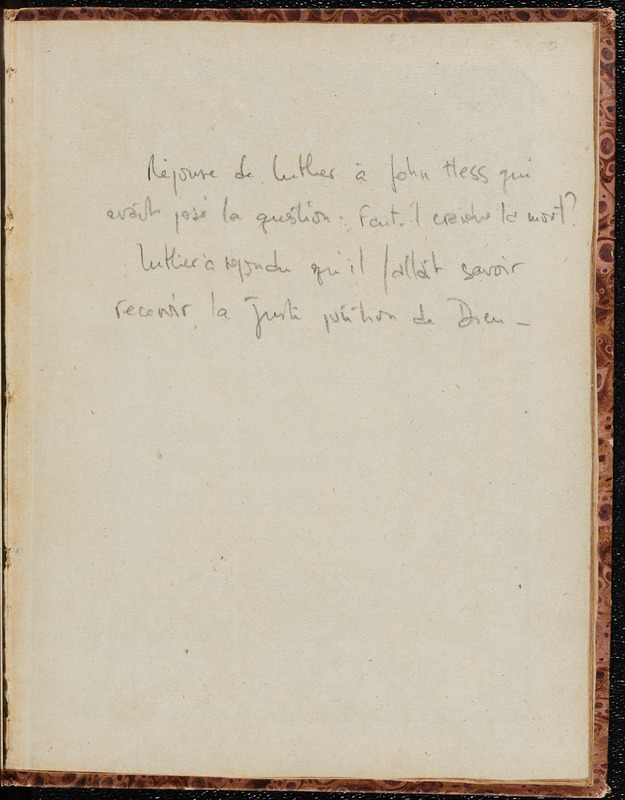 Réponse de Luther à John Hess qui
avait posé la question. Faut-il craindre la mort?
Luther a répondu qu'il fallait savoir
recevoir la juste punition de Dieu –